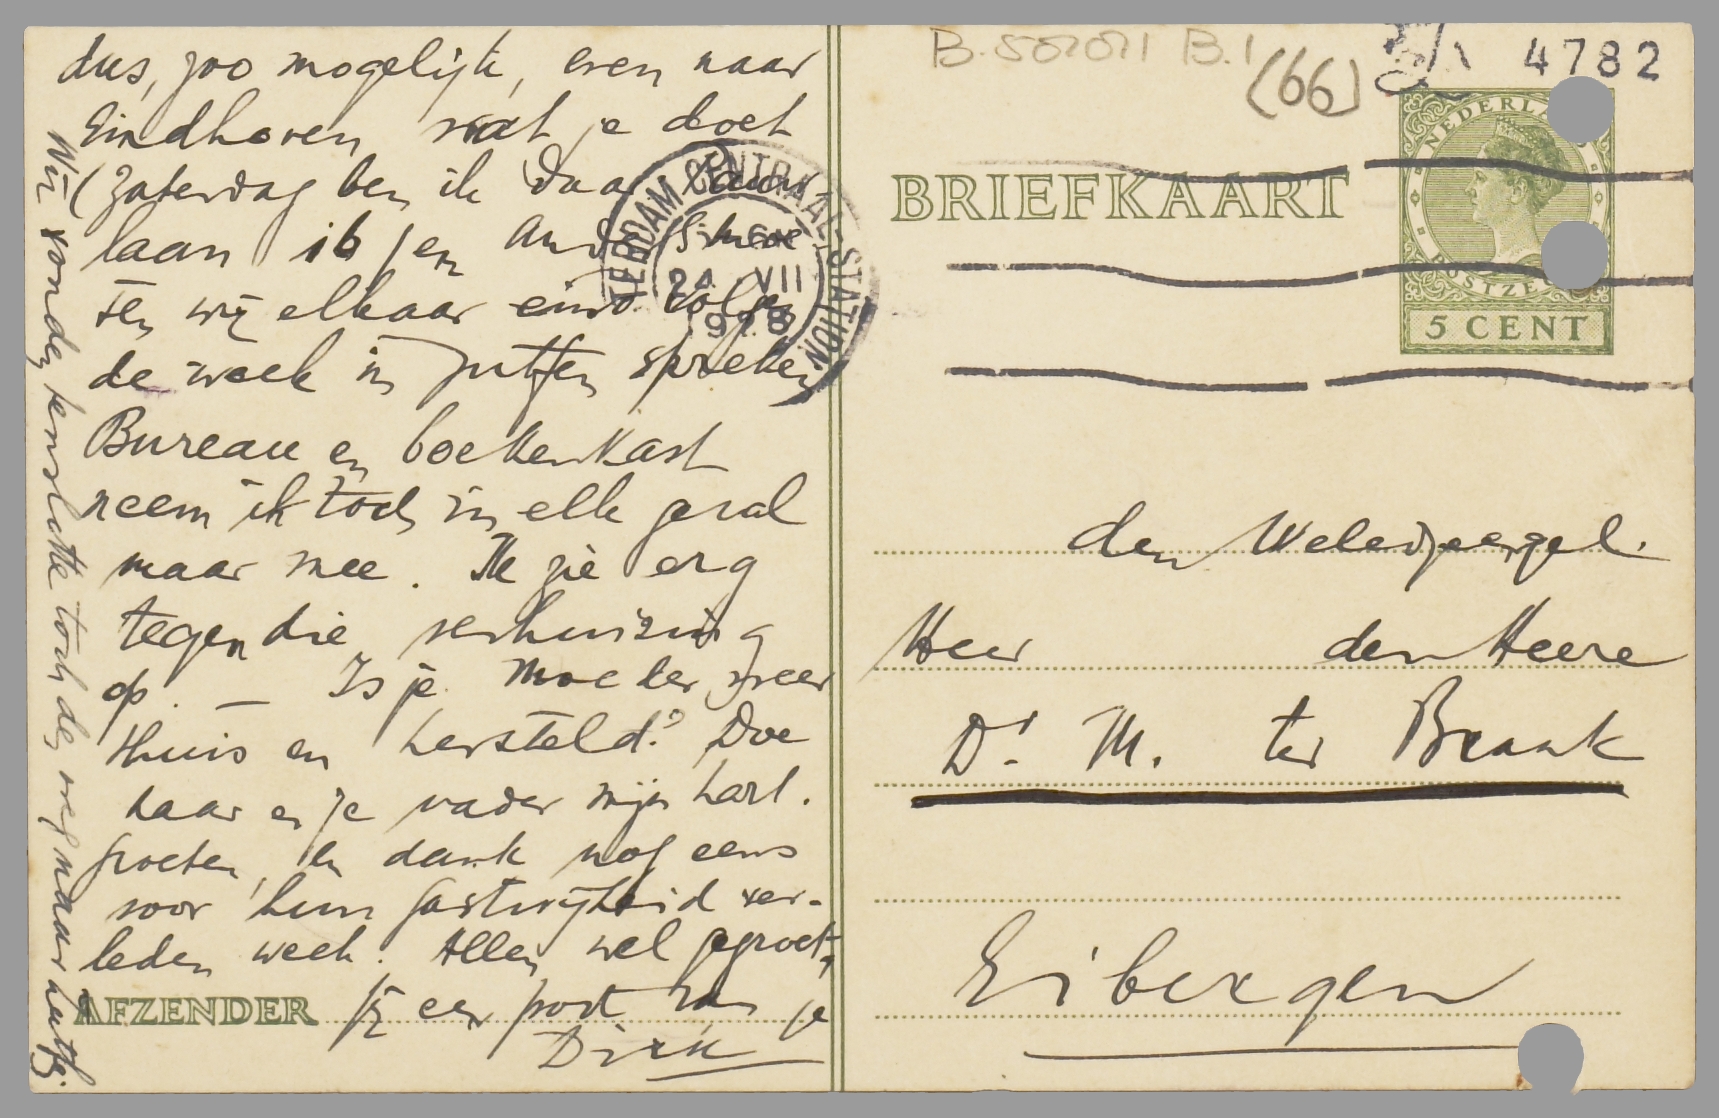 dus, zoo mogelijk, even naar
Eindhoven wat je doet
(Zaterdag ben ik daar
laan 16) en
ten wij elkaar eind volgen
de week in Zutfen spreken
Bureau en boekenkast
neem ik toch in elk geval
maar mee. Ik zie erg
tegen die verhuizing
op. — Is je moeder weer
thuis en hersteld? Doe
haar en je vader mijn hart.
groeten, en dank nog eens
voor hun gastvrijheid ver-
leden week. Allen wel gegroet,
AFZENDER jij een poot van je
Dirk
Wij vonden toch den weg maar
B.501011 B.1
(66)
4782
BRIEFKAART
NEDERLAND
POSTZEGEL
5 CENT
AMSTERDAM CENTRAAL STATION
24 VII
1928
den Weledzeergel.
Heer den Heere
Dr. M. ter Braak
Eibergen